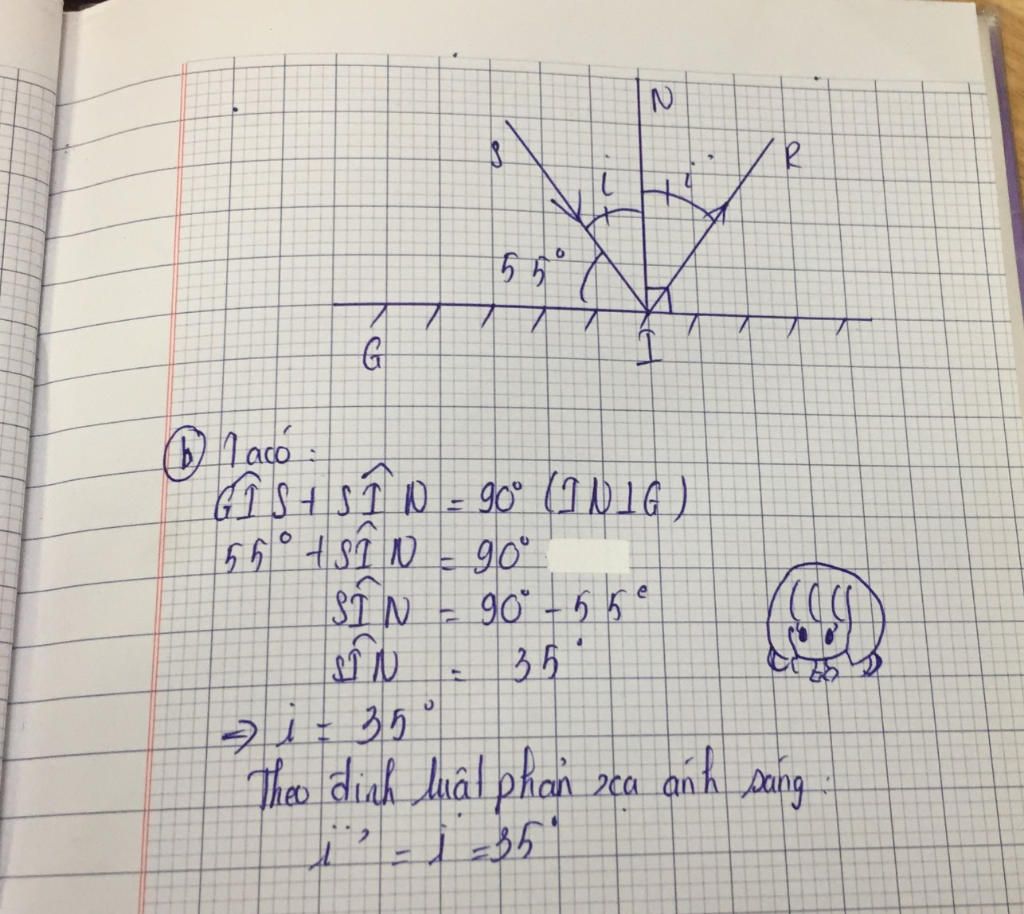 N
S
i
i'
R
55°
G
I
b) Ta có:
GÎS + SÎN = 90° (IN⊥G)
55° + SÎN = 90°
SÎN = 90° - 55°
SÎN = 35°
=> i = 35°
Theo định luật phản xạ ánh sáng:
i' = i = 35°